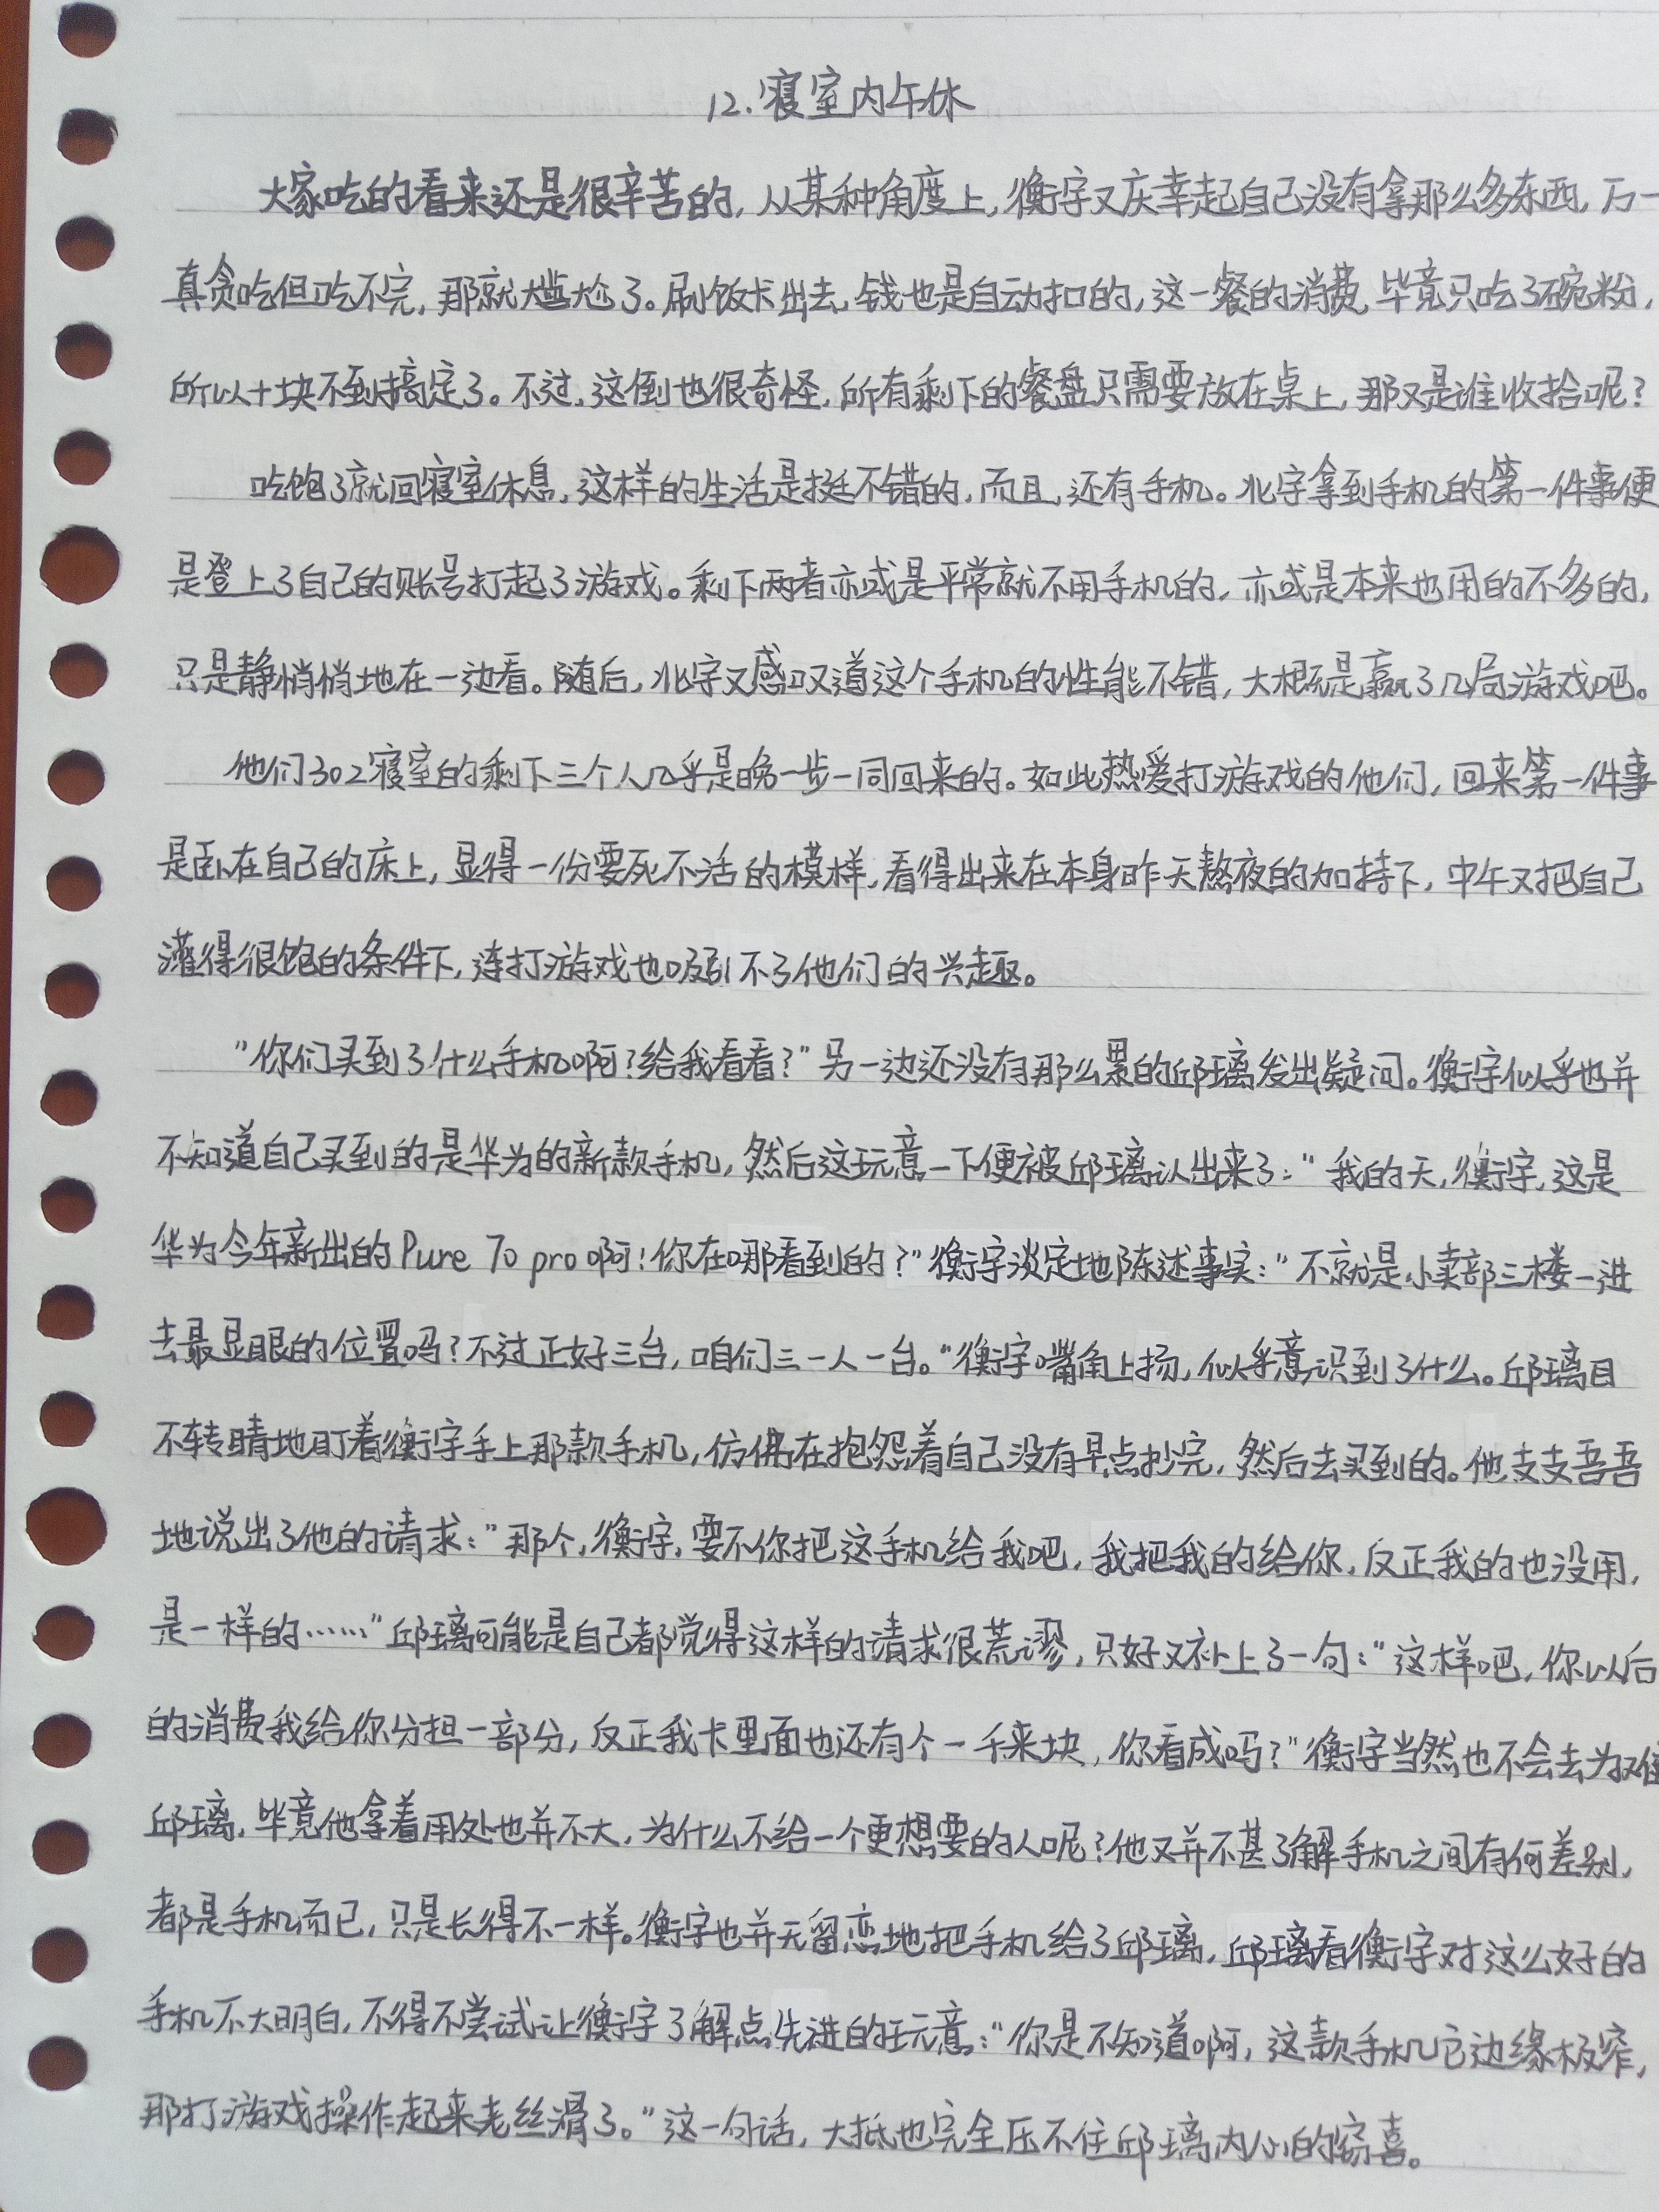 12.寝室内午休
大家吃的看来还是很辛苦的,从某种角度上,衡宇又庆幸起自己没有拿那么多东西,万一
真贪吃但吃不完,那就尴尬了。刷饭卡出去,钱也是自动扣的,这一餐的消费,毕竟只吃了碗粉,
所以十块不到搞定了。不过,这倒也很奇怪,所有剩下的餐盘只需要放在桌上,那又是谁收拾呢?
吃饱了就回寝室休息,这样的生活是挺不错的,而且,还有手机。北宇拿到手机的第一件事便
是登上了自己的账号打起了游戏。剩下两者亦或是平常就不用手机的,亦或是本来也用的不多的,
只是静悄悄地在一边看。随后,北宇又感叹道这个手机的性能不错,大概是赢了几局游戏吧。
他们302寝室的剩下三个人几乎是晚一步一同回来的。如此热爱打游戏的他们,回来第一件事
是卧在自己的床上,显得一份要死不活的模样,看得出来在本身昨天熬夜的加持下,中午又把自己
灌得很饱的条件下,连打游戏也吸引不了他们的兴趣。
"你们买到了什么手机啊?给我看看?"另一边还没有那么累的邱璃发出疑问。衡宇似乎也并
不知道自己买到的是华为的新款手机,然后这玩意一下便被邱璃认出来了:"我的天,衡宇,这是
华为今年新出的Pure 70 pro啊!你在哪看到的?"衡宇淡定地陈述事实:"不就是小卖部三楼一进
去最显眼的位置吗?不过正好三台,咱们三一人一台。"衡宇嘴角上扬,似乎意识到了什么。邱璃目
不转睛地盯着衡宇手上那款手机,仿佛在抱怨着自己没有早点抄完,然后去买到的。他支支吾吾
地说出了他的请求:"那个,衡宇,要不你把这手机给我吧,我把我的给你,反正我的也没用,
是一样的……"邱璃可能是自己都觉得这样的请求很荒谬,只好又补上了一句:"这样吧,你以后
的消费我给你分担一部分,反正我卡里面也还有个一千来块,你看成吗?"衡宇当然也不会去为难
邱璃,毕竟他拿着用处也并不大,为什么不给一个更想要的人呢?他又并不甚了解手机之间有何差别,
都是手机而已,只是长得不一样。衡宇也并无留恋地把手机给了邱璃,邱璃看衡宇对这么好的
手机不大明白,不得不尝试让衡宇了解点先进的玩意:"你是不知道啊,这款手机它边缘极窄,
那打游戏操作起来老丝滑了。"这一句话,大抵也完全压不住邱璃内心的窃喜。